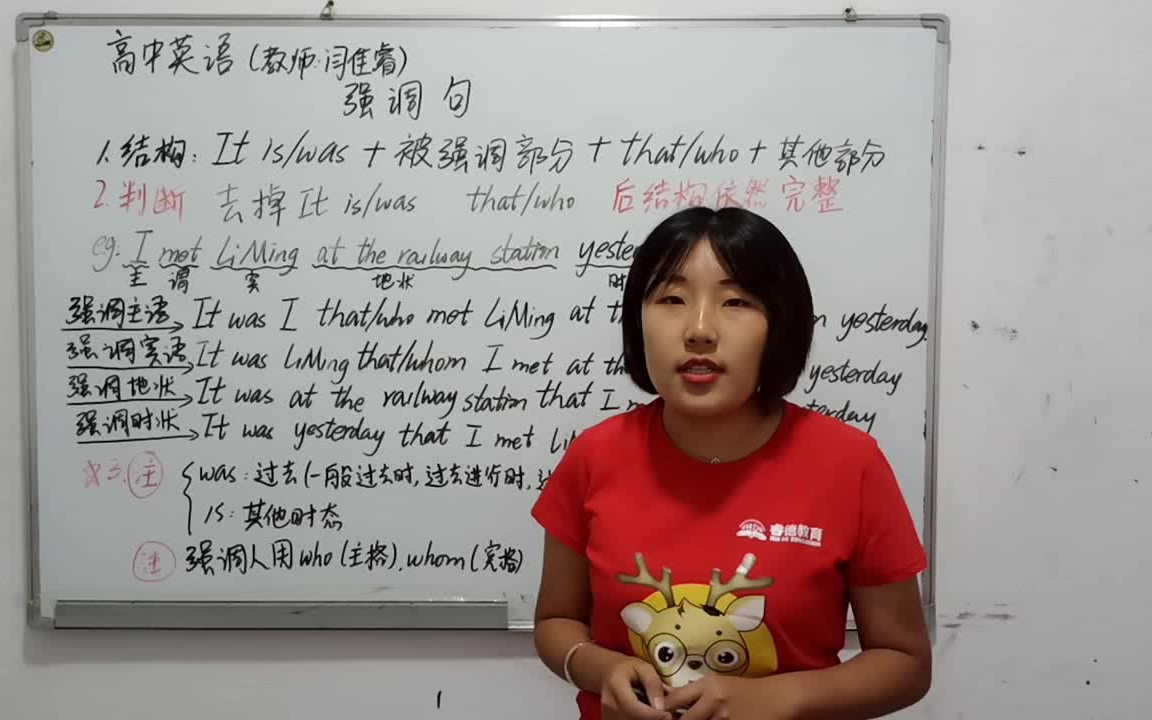 高中英语(教师:闫佳睿)
强调句
1.结构: It is/was + 被强调部分 + that/who + 其他部分
2.判断 去掉It is/was that/who 后结构依然完整
eg: I met LiMing at the railway station yester
主 谓 宾 地状 时
强调主语 It was I that/who met LiMing at th n yesterday.
强调宾语 It was LiMing that/whom I met at th yesterday
强调地状 It was at the railway station that I m terday
强调时状 It was yesterday that I met LiM
☆ 3. 注 was: 过去(一般过去时, 过去进行时,
is: 其他时态
注 强调人用who(主格), whom(宾格)
睿德教育